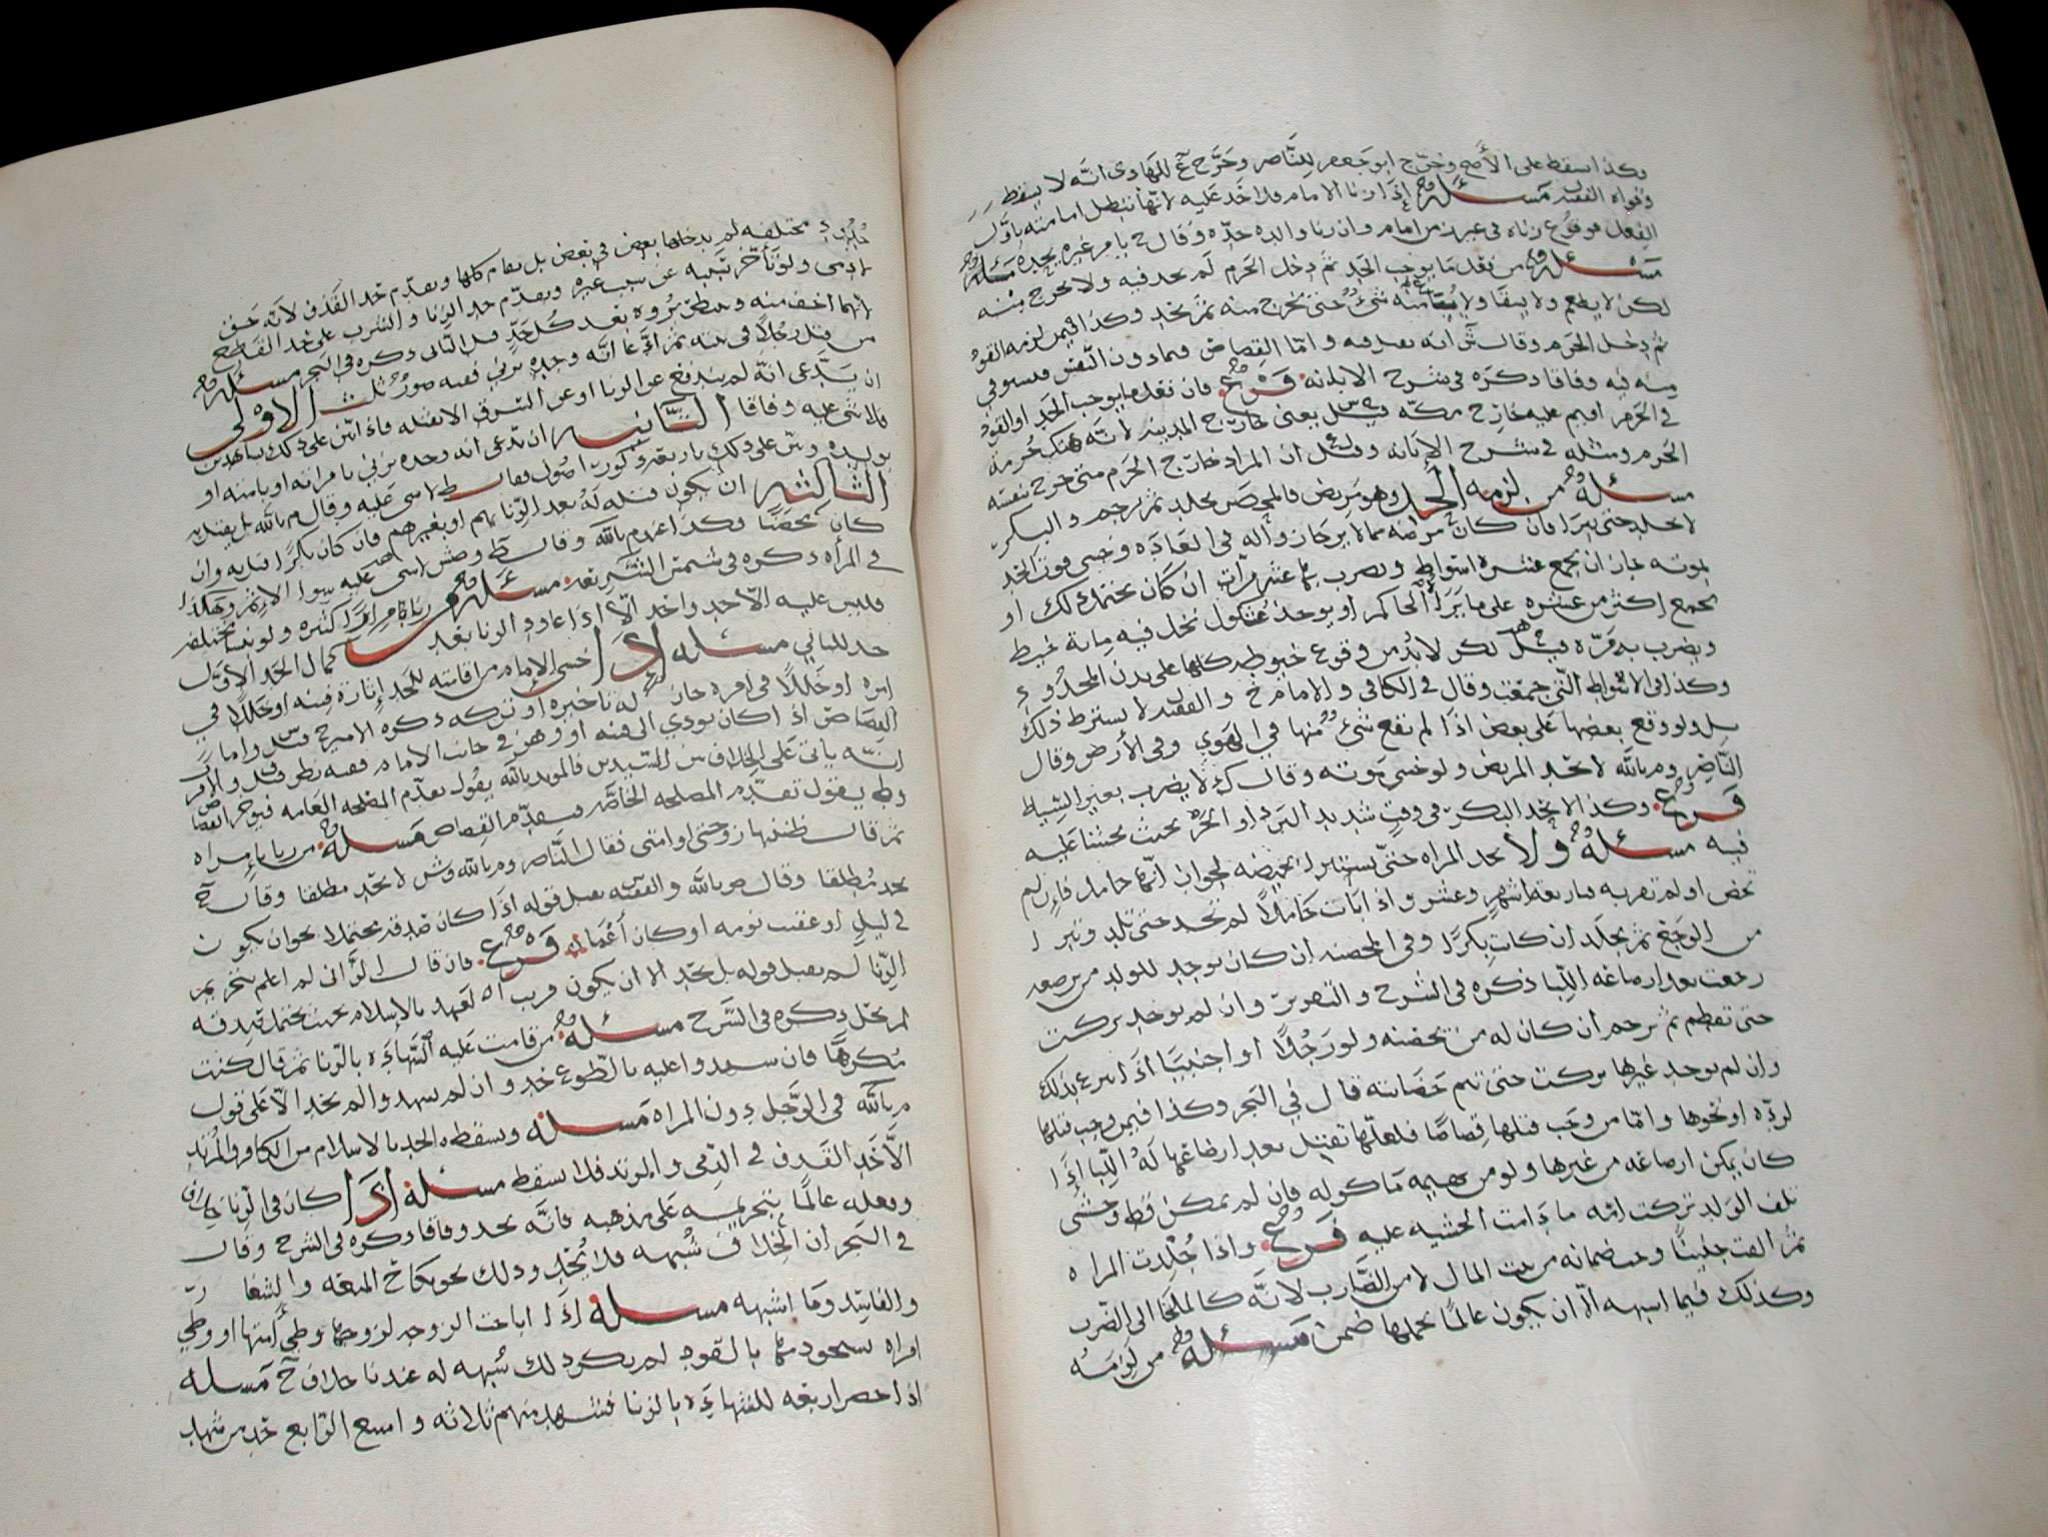 وكذا اسقط على الأصح وخرج ابو جعفر للناصر وخرج ع للهادى انه لا يسقط
وقواه الفقيه مسئلة اذا زنا الامام فلا حد عليه لانها تبطل امامته باول
الفعل فوقوع زناه في غير زمن امام وان زنا والده حده وقال ح يامر غيره بحده مسئلة
مسئلة من فعل ما يوجب الحد ثم دخل الحرم لم يحد فيه ولا يخرج منه
لكن لا يطعم ولا يسقا ولا شئ حتى يخرج منه ثم يحد وكذا فيمن لزمه القود
ثم دخل الحرم وقال ش انه يحد فيه واما القصاص فيما دون النفس فيستوفي
منه فيه وفاقا ذكره في شرح الابانه فرع فان فعل ما يوجب الحد او القود
في الحرم اقيم عليه خارج مكه قيل يعني خارج المدينه لانه هتك حرمة
الحرم ومثله في شرح الإبانه وقيل ان المراد خارج الحرم متى خرج بنفسه
مسئلة من لزمه الحد وهو مريض فالمحصن يجلد ثم يرجم والبكر
لا يجلد حتى يبرا فان كان مرضه مما لا يرجا زواله في العاده وخشى فوت الحد
بموته جاز ان يجمع عشرة اسواط ويضرب بها عشر مرات ان كان يحتمل ذلك او
يجمع اكثر من عشره على ما يراه الحاكم او يوخذ عثكول نخل فيه ماية خيط
ويضرب به مره قيل لكن لابد من وقوع خيوطه كلها على بدن المحدود
وكذا في الاسواط التي جمعت وقال في الكافي والامام ح والفقيه لا يشترط ذلك
بل ولو وقع بعضها على بعض اذا لم تقع شئ منها في الهوي وفي الأرض وقال
الناصر وم بالله لا يحد المريض ولو خشى موته وقال ك لا يضرب بغير السياط
فرع وكذا لا يحد البكر في وقت شديد البرد او الحر بحيث يخشا عليه
فيه مسئلة ولا يحد المراه حتى يستبرا بحيضه لجواز انها حامل فان لم
تحض او لم تقر به فباربعة اشهر وعشر واذا بانت حاملا لم تحد حتى تلد وتبرا
من الوجع ثم يجلد ان كانت بكرا وفي المحصنه ان كان يوجد للولد من يرضعه
رجمت بعد ارضاعه اللبا ذكره في الشرح والتقرير وان لم يوجد تركت
حتى تفطم ثم ترجم ان كان له من يحضنه ولو رجلا او اجنبيا اذا تبرع بذلك
وان لم يوجد غيرها تركت حتى تتم حضانته قال في البحر وكذا فيمن وجب قتلها
لرده او نحوها واما من وجب قتلها قصاصا فلعلها تقتل بعد ارضاعها له اللبا اذا
كان يمكن ارضاعه من غيرها ولو من بهيمه ماكوله فان لم يمكن قط وخشى
تلف الولد تركت امه ما دامت الخشيه عليه فرع واذا جلدت المراه
ثم القت جنينا وجب ضمانه من بيت المال لا من الضارب لانه كالملجا الى الضرب
وكذلك فيما اشبهه الا ان يكون عالما بحملها ضمن مسئلة من لزمته
حدود مختلفه لم يدخل بعضها في بعض بل يقام كلها ويقدم حد القذف لانه حق
لادمى ولو تأخر سببه عن سبب غيره ويقدم حد الزنا والشرب على حد القطع
لانهما اخف منه وينتظر بروه بعد كل حد قبل الثاني ذكره في البحر مسئلة
من قتل رجلا في بيته ثم ادعا انه وجده يزني ففيه صور ثلث الاولى
ان يدعى انه لم يندفع عن الزنا او عن السرق الا بقتله فاذا بين على ذلك بشاهدين
فلا شئ عليه وفاقا الثانيه ان يدعى انه وجده يزني بامراته او بامته او
بولده وبين على ذلك باربعه ذكور اصول فقال ط لا شى عليه وقال م بالله يقتل به
الثالثه ان يكون قتله له بعد الزنا بهم او بغيرهم فان كان بكرا قتل به وان
كان محصنا فكذا عند م بالله وقال ط وص وش لا شى عليه سوا الاثم وهكذا
في المرأه ذكره في شمس الشريعه مسئلة من زنا بامراة كثيره ولو بنسا مختلفه
فليس عليه الا حد واحد الا اذا عاود الزنا بعد كمال الحد الاول
حد للثاني مسئله اذا خشى الامام من اقامته للحد اثارة فتنه او خللا في
امره او خللا في امره جاز له تاخيره او تركه ذكره الامير ح قيل واما
القصاص اذا كان يودي الى فتنه او وهن في جانب الامام ففيه نظر قيل والاقرب
انه ياتى على الخلاف بين السيدين فالمويد بالله يقول تقدم المصلحه العامه فيوخر القصاص
وط يقول تقدم المصلحه الخاصه فيقدم القصاص مسئلة من زنا بامراه
ثم قال ظننتها زوجتى او امتى فقال الناصر وم بالله وش لا يحد مطلقا وقال ح
يحد مطلقا وقال ص بالله والفقيه يقبل قوله اذا كان صدقه محتملا نحو ان يكون
في ليل او عقيب نومه او كان اعمى فرع فان قال الزانى لم اعلم بتحريم
الزنا لم يقبل قوله بل يحد الا ان يكون قريب العهد بالاسلام بحيث يحتمل صدقه
لم يحد ذكره في الشرح مسئلة من قامت عليه الشهادة بالزنا ثم قال كنت
مكرها فان شهدوا عليه بالطوع حد وان لم يشهدوا لم يحد الا على قول
م بالله في الرجل دون المراه مسئله ويسقط الحد بالاسلام من الكافر والمرتد
الا حد القذف في الذمى والمرتد فلا يسقط مسئله اذا كان في الزنا خلاف
وفعله عالما بتحريمه على مذهبه فانه يحد وفاقا ذكره في الشرح وقال
في البحر ان الخلاف شبهه فلا يحد وذلك نحو نكاح المتعه والشغار
والفاسد وما اشبهه مسئله اذا اباحت الزوجه لزوجها وطي أمتها او وطي
امراه يستحق دمها بالقود لم يكن ذلك شبهه له عندنا خلاف ح مسئله
اذا حضر اربعه للشهادة بالزنا فشهد منهم ثلاثه وامتنع الرابع حد من شهد